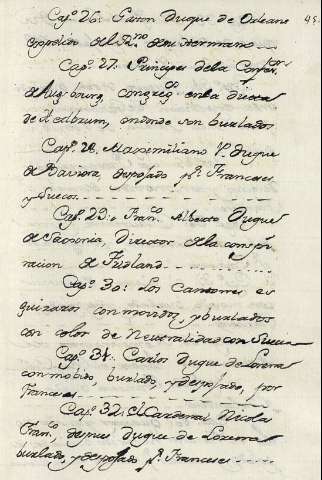 Capº 26: Gaston Duque de Orleans 45
expelido del Rnº de su hermano
Capº 27: Principes de la Confes.on
de Augsbourg, congreg.os en la Dieta
de Heilbrum, en donde son burlados
Capº 28. Maxemiliano Vº Duque
de Baviera, despojado pr. Franceses
y Suecos
Capº 29: Franco. Alberto Duque
de Saxonia, Director de la conspi
racion de Fridland
Capº 30: Los Cantones es
guizaros conmovidos, y burlados
con color de Neutralidad con Suecia
Capº 31: Carlos Duque de Lorena
conmobido, burlado, y despojado, por
Franceses
Capº 32: el Cardenal Nicolas
Franco. despues Duque de Lorena
burlado, y despojado pr. Franceses